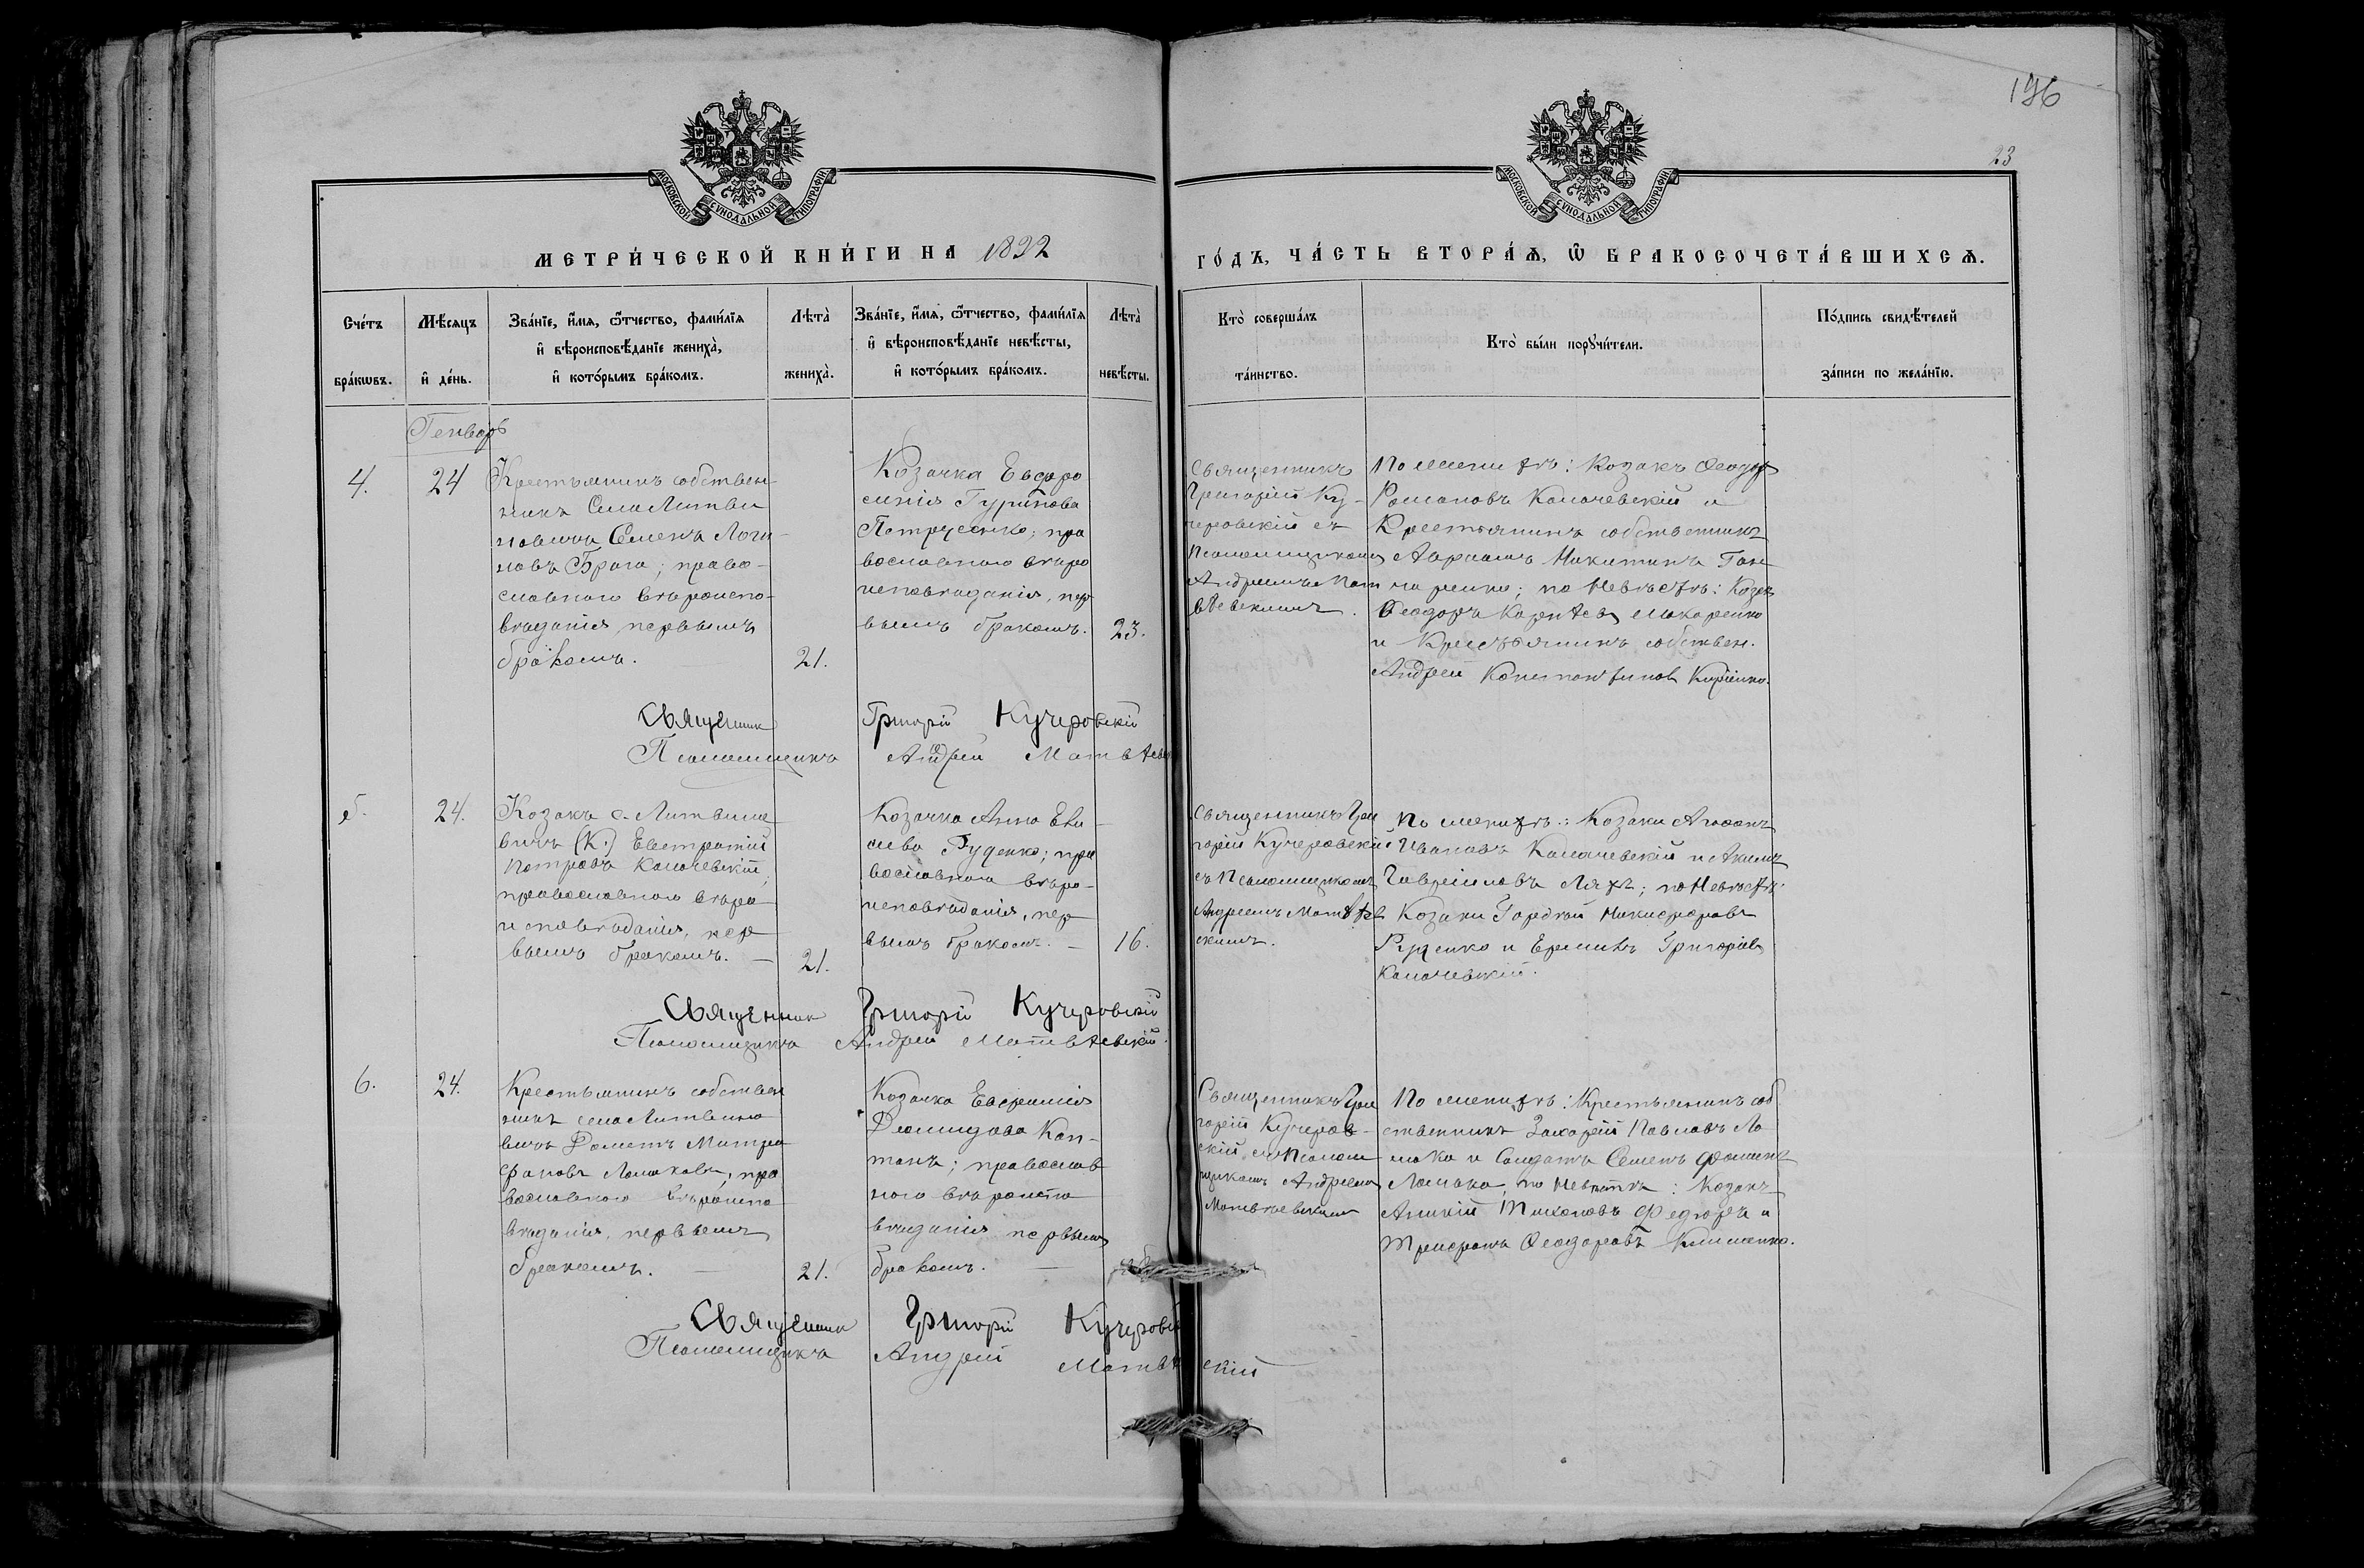 196
23
МОСКОВСКОЙ СѴНОДАЛЬНОЙ ТИПОГРАФІИ
МОСКОВСКОЙ СѴНОДАЛЬНОЙ ТИПОГРАФІИ
МЕТРИ́ЧЕСКОЙ КНИ́ГИ НА 1892
ГО́ДЪ, ЧА́СТЬ ВТОРА́Ѧ, Ѽ БРАКОСОЧЕТА́ВШИХСѦ.
Сче́тъ
бра́кѡвъ.
Мѣ́сѧцъ
и҆ де́нь.
Зва́нїе, и҆́мѧ, ѻ҆́тчество, фами́лїѧ
и҆ вѣроисповѣ́данїе жениха̀,
и҆ кото́рымъ бра́комъ.
Лѣта̀
жениха̀.
Зва́нїе, и҆́мѧ, ѻ҆́тчество, фами́лїѧ
и҆ вѣроисповѣ́данїе невѣ́сты,
и҆ кото́рымъ бра́комъ.
Лѣта̀
невѣ́сты.
Кто̀ соверша́лъ
та́инство.
Кто̀ бы́ли порꙋчи́тели.
По́дпись свидѣ́телей
за́писи по жела́нїю.
Генварь
4.
24
Крестьянинъ собствен-
никъ села Литви
новичъ Семенъ Логи-
новъ Брага; право-
славнаго вѣроиспо-
вѣданія, первымъ
бракомъ.
21.
Козачка Евфро
синія Гурїнова
Петрусенко; пра
вославнаго вѣро
исповѣданія, пер
вымъ бракомъ.
23.
Священникъ
Григорій Ку-
черовскій съ
Псаломщикомъ
Андреемъ Мат
вѣевскимъ.
По женихѣ: Козакъ Ѳеодоръ
Романовъ Калачевскій и
Крестьянинъ собственникъ
Авраамъ Никитинъ Гон
чаренко; по Невѣстѣ: Козакъ
Ѳеодоръ Карпѣевъ Макаренко
и Крестьянинъ собствен.
Андрей Константиновъ Киріенко.
Священник Григорій Кучеровскій
Псаломщикъ Андрей Матвѣевск
5.
24.
Козакъ с. Литвино
вичъ (К.) Евстратій
Петровъ Калачевскій,
православнаго вѣро
исповѣданія, пер
вымъ бракомъ. —
21.
Козачка Анна Ели
сѣева Руденко; пра
вославнаго вѣро-
исповѣданія, пер
вымъ бракомъ. —
16.
Священникъ Гри
горій Кучеровскій
съ Псаломщикомъ
Андреемъ Матвѣев
скимъ.
По женихѣ: Козаки Агафонъ
Ивановъ Калачевскій и Акимъ
Гавріиловъ Ляхъ; по Невѣстѣ:
Козаки Гордѣй Никифоровъ
Руденко и Ермилъ Григоріевъ
Калачевскій.
Священник Григорій Кучеровскій
Псаломщикъ Андрей Матвѣевскій
6.
24.
Крестьянинъ собствен
никъ села Литвино
вичъ Фометъ Митро
фановъ Ломаковъ, пра
вославнаго вѣроиспо
вѣданія, первымъ
бракомъ. —
21.
Козачка Евфимія
Демидова Кап-
танъ; православ
наго вѣроиспо
вѣданія первымъ
бракомъ. —
Священникъ Гри
горій Кучеров-
скій съ Псалом
щикомъ Андреемъ
Матвѣевскимъ
По женихѣ: Крестьянинъ соб
ственникъ Захарій Павловъ Ло
мака и Солдатъ Семенъ Фоминъ
Ломака, по Невѣстѣ: Козакъ
Аникій Тихоновъ Федоръ и
Трифонъ Ѳеодоровъ Клименко.
Священник Григорій Кучеровск
Псаломщикъ Андрей Матвѣевскій